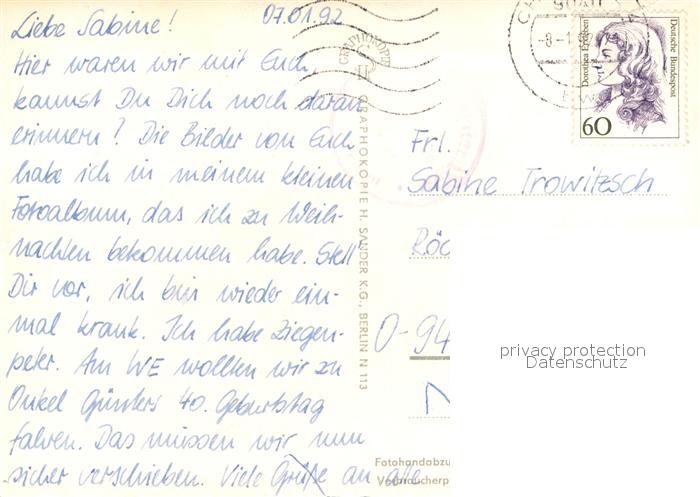 Liebe Sabine!
07.01.92
Hier waren wir mit Euch,
kannst Du Dich noch daran
erinnern? Die Bilder von Euch
habe ich in meinem kleinen
Fotoalbum, das ich zu Weih-
nachten bekommen habe. Stell
Dir vor, ich bin wieder ein-
mal krank. Ich habe Ziegen-
peter. Am WE wollten wir zu
Onkel Günters 40. Geburtstag
fahren. Das müssen wir nun
sicher verschieben. Viele Grüße an alle
GRAPHOKOPIE
GRAPHOKOPIE H. SANDER K.G., BERLIN N 113
Dorothea Erxleben
Deutsche Bundespost
60
Frl.
Sabine Trowitzsch
O-94
Fotohandabzu
privacy protection
Datenschutz